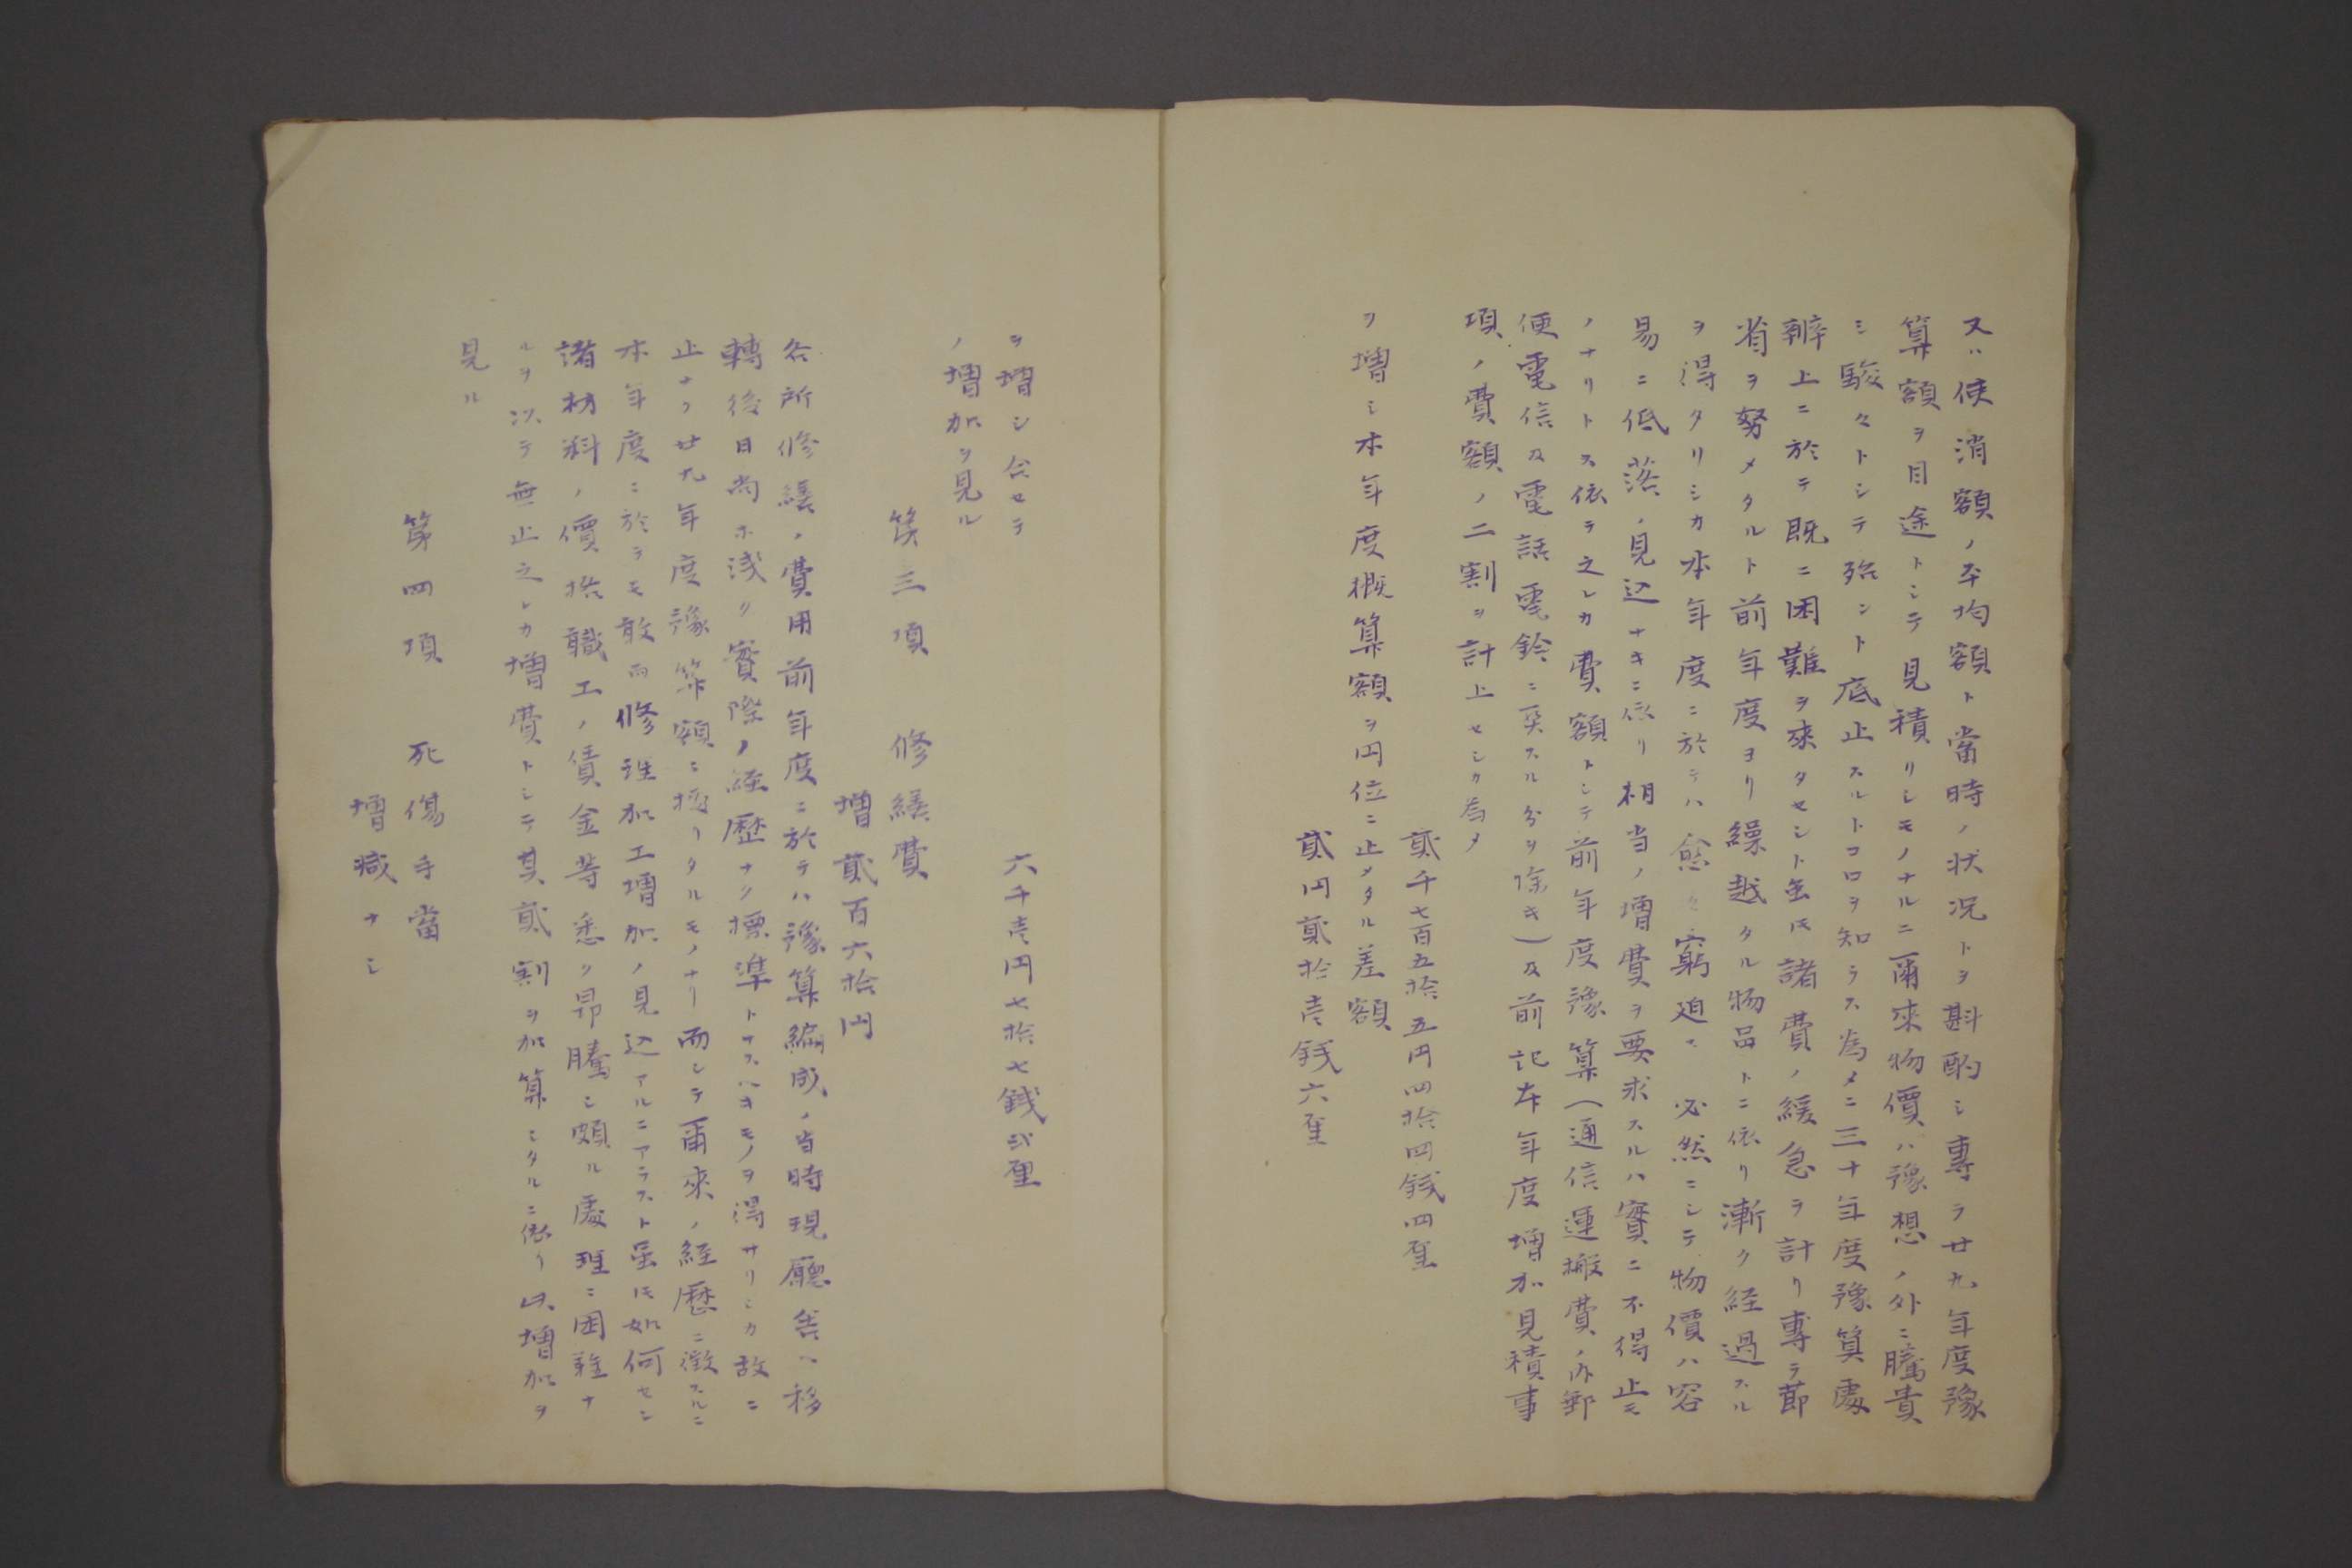 又ハ使消額ノ平均額ト當時ノ状况トヲ斟酌シ專ラ廿九年度豫
算額ヲ目途トシテ見積リシモノナルニ爾來物價ハ豫想ノ外ニ騰貴
シ駸々トシテ殆ント底止スルトコロヲ知ラス為メニ三十年度豫算處
辨上ニ於テ既ニ困難ヲ來タセント雖ﾓ諸費ノ緩急ヲ計リ專ラ節
省ヲ努メタルト前年度ヨリ繰越タル物品トニ依リ漸ク経過スル
ヲ得タリシカ本年度ニ於テハ愈々窮迫ハ必然ニシテ物價ハ容
易ニ低落ノ見込ナキニ依リ相当ノ増費ヲ要求スルハ實ニ不得止モ
ノナリトス依テ之レカ費額トシテ前年度豫算（通信運搬費ノ内郵
便電信及電話電鈴ニ要スル分ヲ除キ）及前記本年度増加見積事
項ノ費額ノ二割ヲ計上セシカ為メ
貳千七百五拾五円四拾四銭四厘
ヲ増シ本年度概算額ヲ円位ニ止メタル差額
貳円貳拾壱銭六厘
ヲ増シ合セテ
六千壱円七拾七銭弐厘
ノ増加ヲ見ル
第三項 修繕費
増貳百六拾円
各所修繕ノ費用前年度ニ於テハ豫算編成ノ当時現廳舎ヘ移
轉後日尚ホ浅ク實際ノ経歴ナク標準トナスヘキモノヲ得サリシカ故ニ
止ナク廿九年度豫算額ニ據リタルモノナリ而シテ爾來ノ経歴ニ徴スルニ
本年度ニ於テモ敢而修理加工増加ノ見込アルニアラスト虽ﾓ如何セン
諸材料ノ價格職工ノ賃金等悉ク昻騰シ頗ル處理ニ困難ナ
ルヲ以テ無止之レカ増費トシテ其貳割ヲ加算シタルニ依リ此増加ヲ
見ル
第四項 死傷手當
増減ナシ